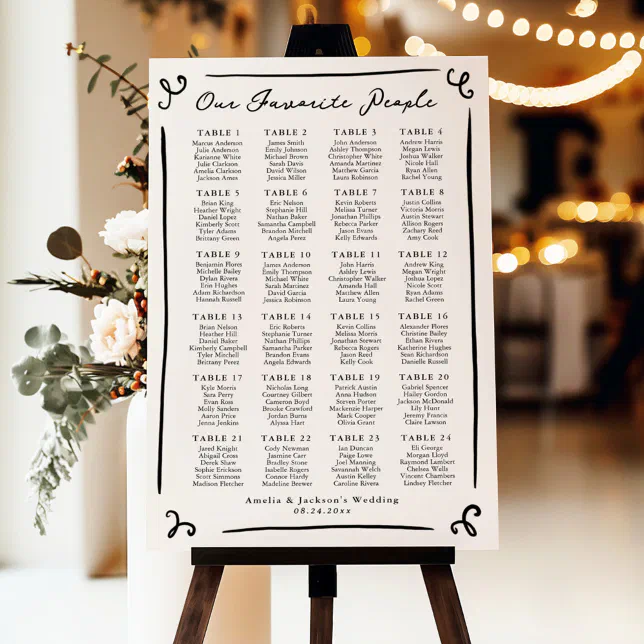 Our Favorite People
TABLE 1
Marcus Anderson
Julie Anderson
Karianne White
Julie Clarkson
Amelia Clarkson
Jackson Ames
TABLE 2
James Smith
Emily Johnson
Michael Brown
Sarah Davis
David Wilson
Jessica Miller
TABLE 3
John Anderson
Ashley Thompson
Christopher White
Amanda Martinez
Matthew Garcia
Laura Robinson
TABLE 4
Andrew Harris
Megan Lewis
Joshua Walker
Nicole Hall
Ryan Allen
Rachel Young
TABLE 5
Brian King
Heather Wright
Daniel Lopez
Kimberly Scott
Tyler Adams
Brittany Green
TABLE 6
Eric Nelson
Stephanie Hill
Nathan Baker
Samantha Campbell
Brandon Mitchell
Angela Perez
TABLE 7
Kevin Roberts
Melissa Turner
Jonathan Phillips
Rebecca Parker
Jason Evans
Kelly Edwards
TABLE 8
Justin Collins
Victoria Morris
Austin Stewart
Allison Rogers
Zachary Reed
Amy Cook
TABLE 9
Benjamin Flores
Michelle Bailey
Dylan Rivera
Erin Hughes
Adam Richardson
Hannah Russell
TABLE 10
James Anderson
Emily Thompson
Michael White
Sarah Martinez
David Garcia
Jessica Robinson
TABLE 11
John Harris
Ashley Lewis
Christopher Walker
Amanda Hall
Matthew Allen
Laura Young
TABLE 12
Andrew King
Megan Wright
Joshua Lopez
Nicole Scott
Ryan Adams
Rachel Green
TABLE 13
Brian Nelson
Heather Hill
Daniel Baker
Kimberly Campbell
Tyler Mitchell
Brittany Perez
TABLE 14
Eric Roberts
Stephanie Turner
Nathan Phillips
Samantha Parker
Brandon Evans
Angela Edwards
TABLE 15
Kevin Collins
Melissa Morris
Jonathan Stewart
Rebecca Rogers
Jason Reed
Kelly Cook
TABLE 16
Alexander Flores
Christine Bailey
Ethan Rivera
Katherine Hughes
Sean Richardson
Danielle Russell
TABLE 17
Kyle Morris
Sara Perry
Evan Ross
Molly Sanders
Aaron Price
Jenna Jenkins
TABLE 18
Nicholas Long
Courtney Gilbert
Cameron Boyd
Brooke Crawford
Jordan Burns
Alyssa Hart
TABLE 19
Patrick Austin
Anna Hudson
Steven Porter
Mackenzie Harper
Mark Cooper
Olivia Grant
TABLE 20
Gabriel Spencer
Hailey Gordon
Jackson McDonald
Lily Hunt
Jeremy Francis
Claire Lawson
TABLE 21
Jared Knight
Abigail Cross
Derek Shaw
Sophie Erickson
Scott Simmons
Madison Fletcher
TABLE 22
Cody Newman
Jasmine Carr
Bradley Stone
Isabelle Rogers
Connor Hardy
Madeline Brewer
TABLE 23
Ian Duncan
Paige Lowe
Joel Manning
Savannah Welch
Austin Kelley
Caroline Rivera
TABLE 24
Eli George
Morgan Lloyd
Raymond Lambert
Chelsea Wells
Vincent Chambers
Lindsey Fletcher
Amelia & Jackson's Wedding
08.24.20xx